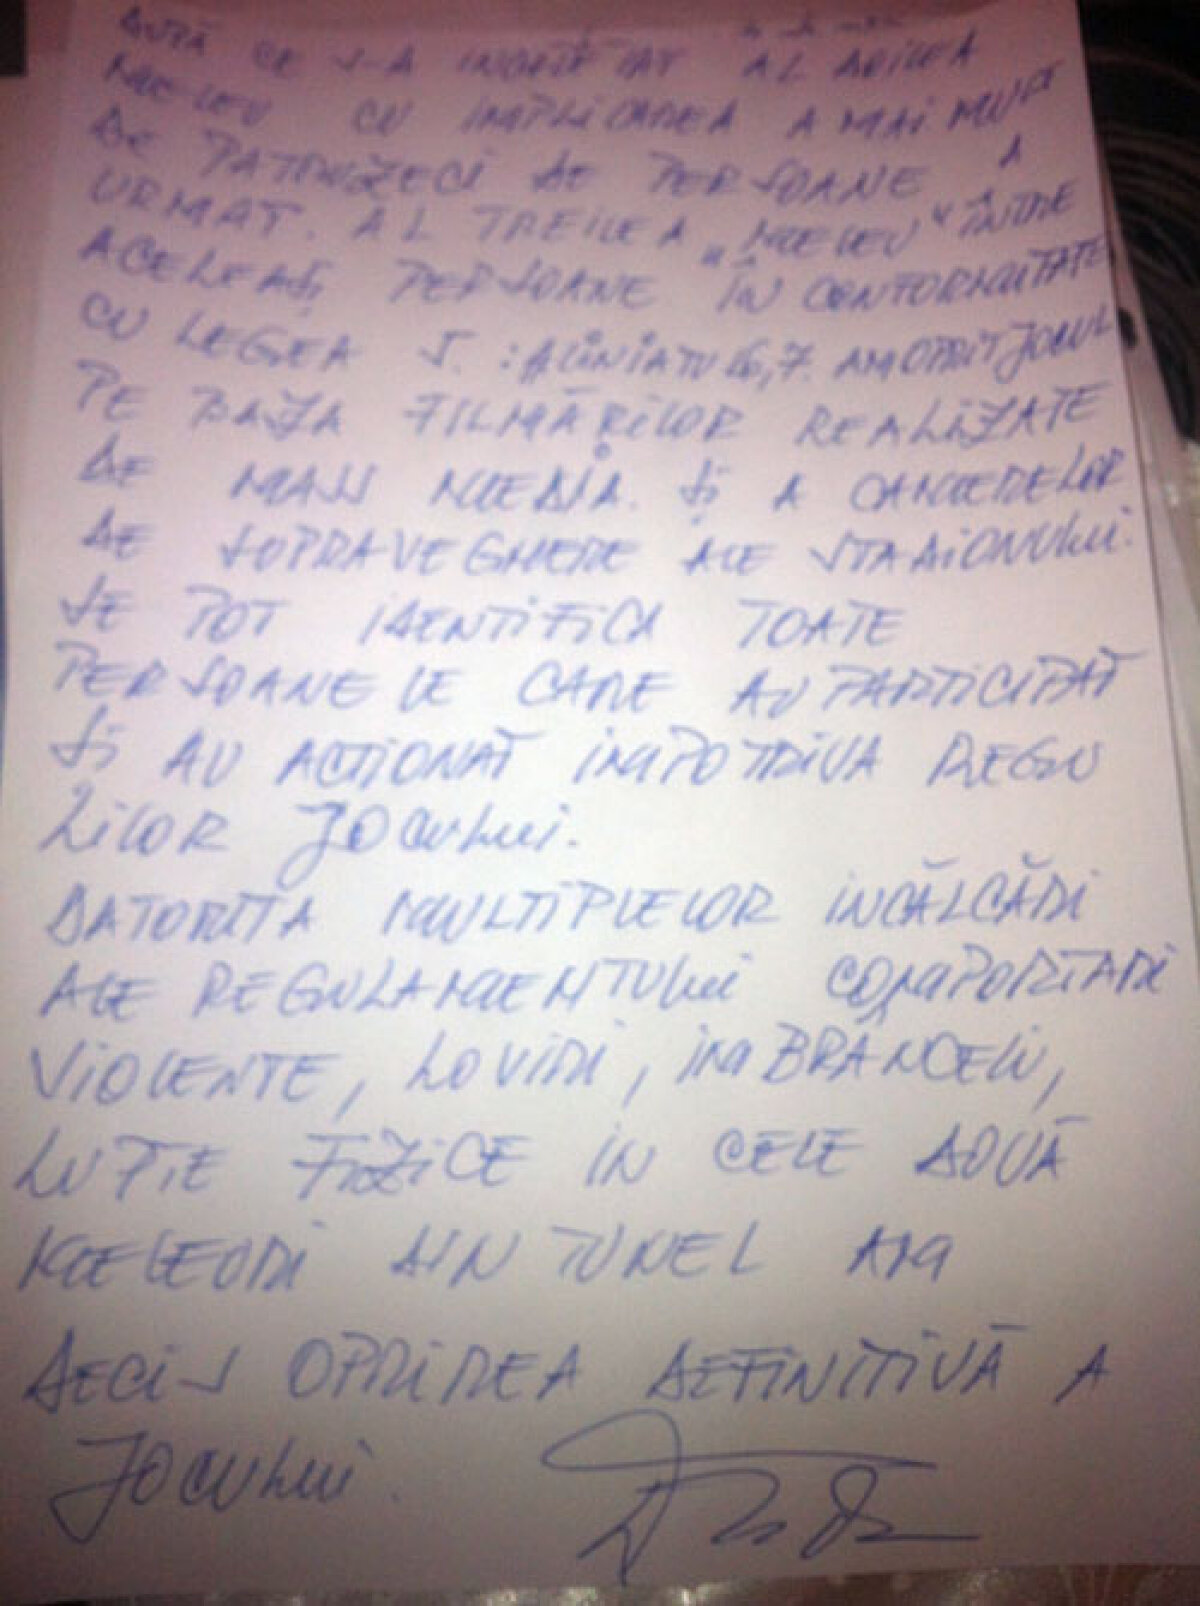 DUPĂ CE S-A INCHEIAT AL DOILEA
MELEU CU IMPLICAREA A MAI MULT
DE PATRUZECI DE PERSOANE A
URMAT. AL TREILEA „MELEU" ÎNTRE
ACELEAȘI PERSOANE ÎN CONFORMITATE
CU LEGEA 5. : ALINIATUL 6,7. AM OPRIT JOCUL
PE BAZA FILMĂRILOR REALIZATE
DE MASS MEDIA. ȘI A CAMERELOR
DE SUPRAVEGHERE ALE STADIONULUI.
SE POT IDENTIFICA TOATE
PERSOANELE CARE AU PARTICIPAT
ȘI AU ACTIONAT IMPOTRIVA REGU
LILOR JOCULUI.
DATORITA MULTIPLELOR INCĂLCĂRI
ALE REGULAMENTULUI COMPORTARI
VIOLENTE, LOVIRI, IMBRÂNCELI,
LUPTE FIZICE IN CELE DOUĂ
MELEURI DIN TUNEL AM
DECIS OPRIREA DEFINITIVĂ A
JOCULUI.